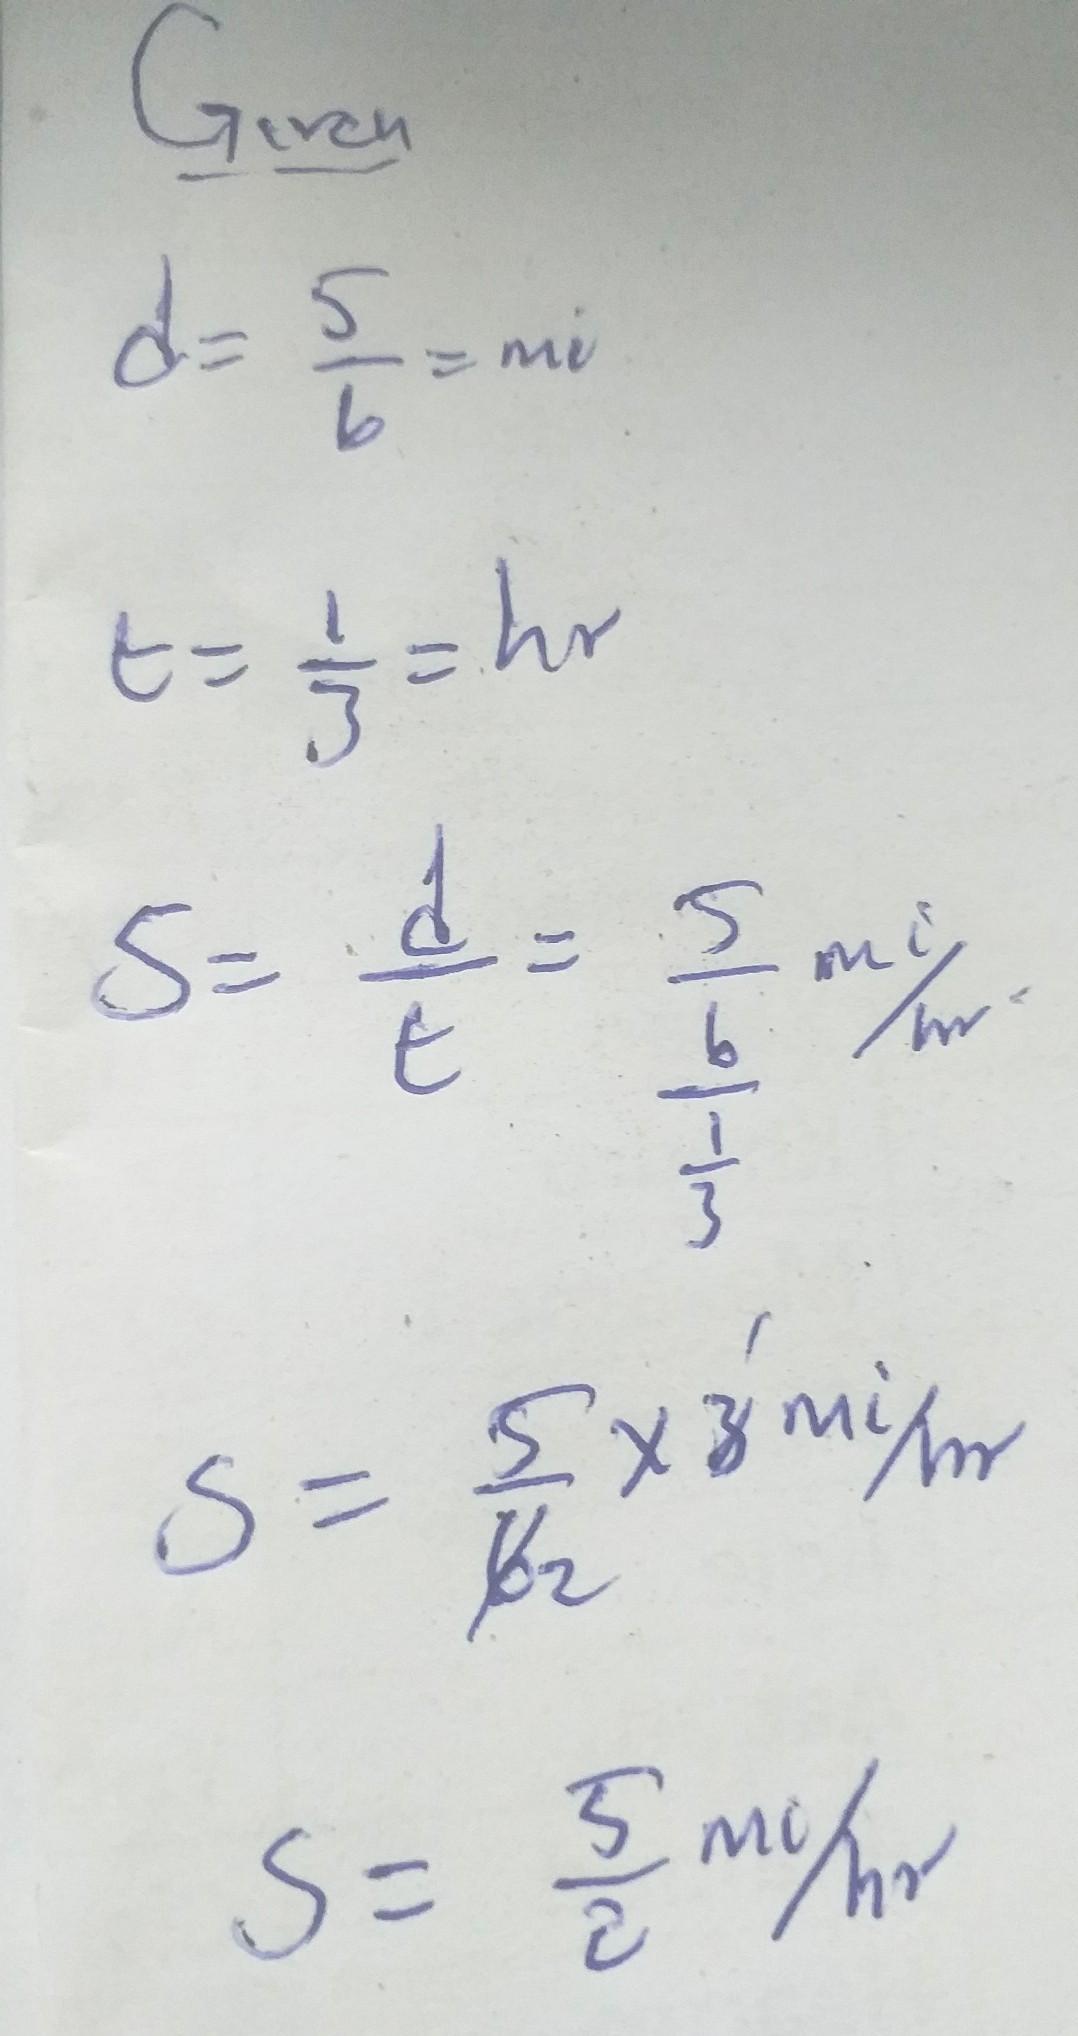 Given
d = 5/6 = mi
t = 1/3 = hr
S = d/t = 5/6/1/3 mi/hr
S = 5/6 2 x 3 1 mi/hr
S = 5/2 mi/hr